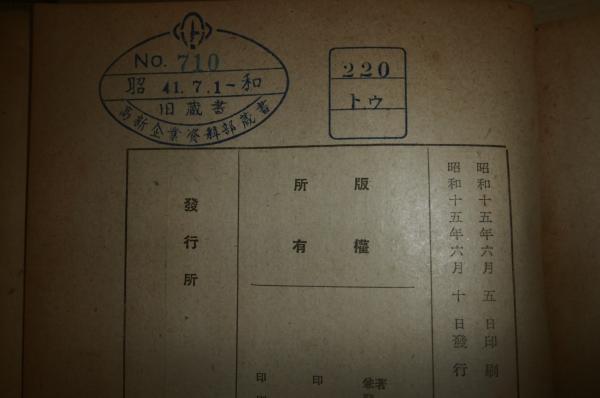 No. 710
昭 41.7.1~ 和
旧蔵書
高新企業資料部蔵書
220
トゥ
昭和十五年六月五日印刷
昭和十五年六月十日發行
版權
所有
發行所
印
印
著